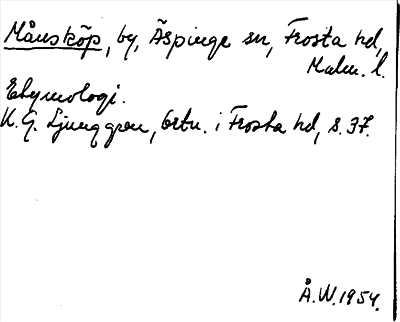 Månsköp, by, Äspinge sn, Frosta hd,
Malm. l.
Etymologi.
K. G. Ljunggren, ortn. i Frosta hd, s. 37.
Å. W. 1954.